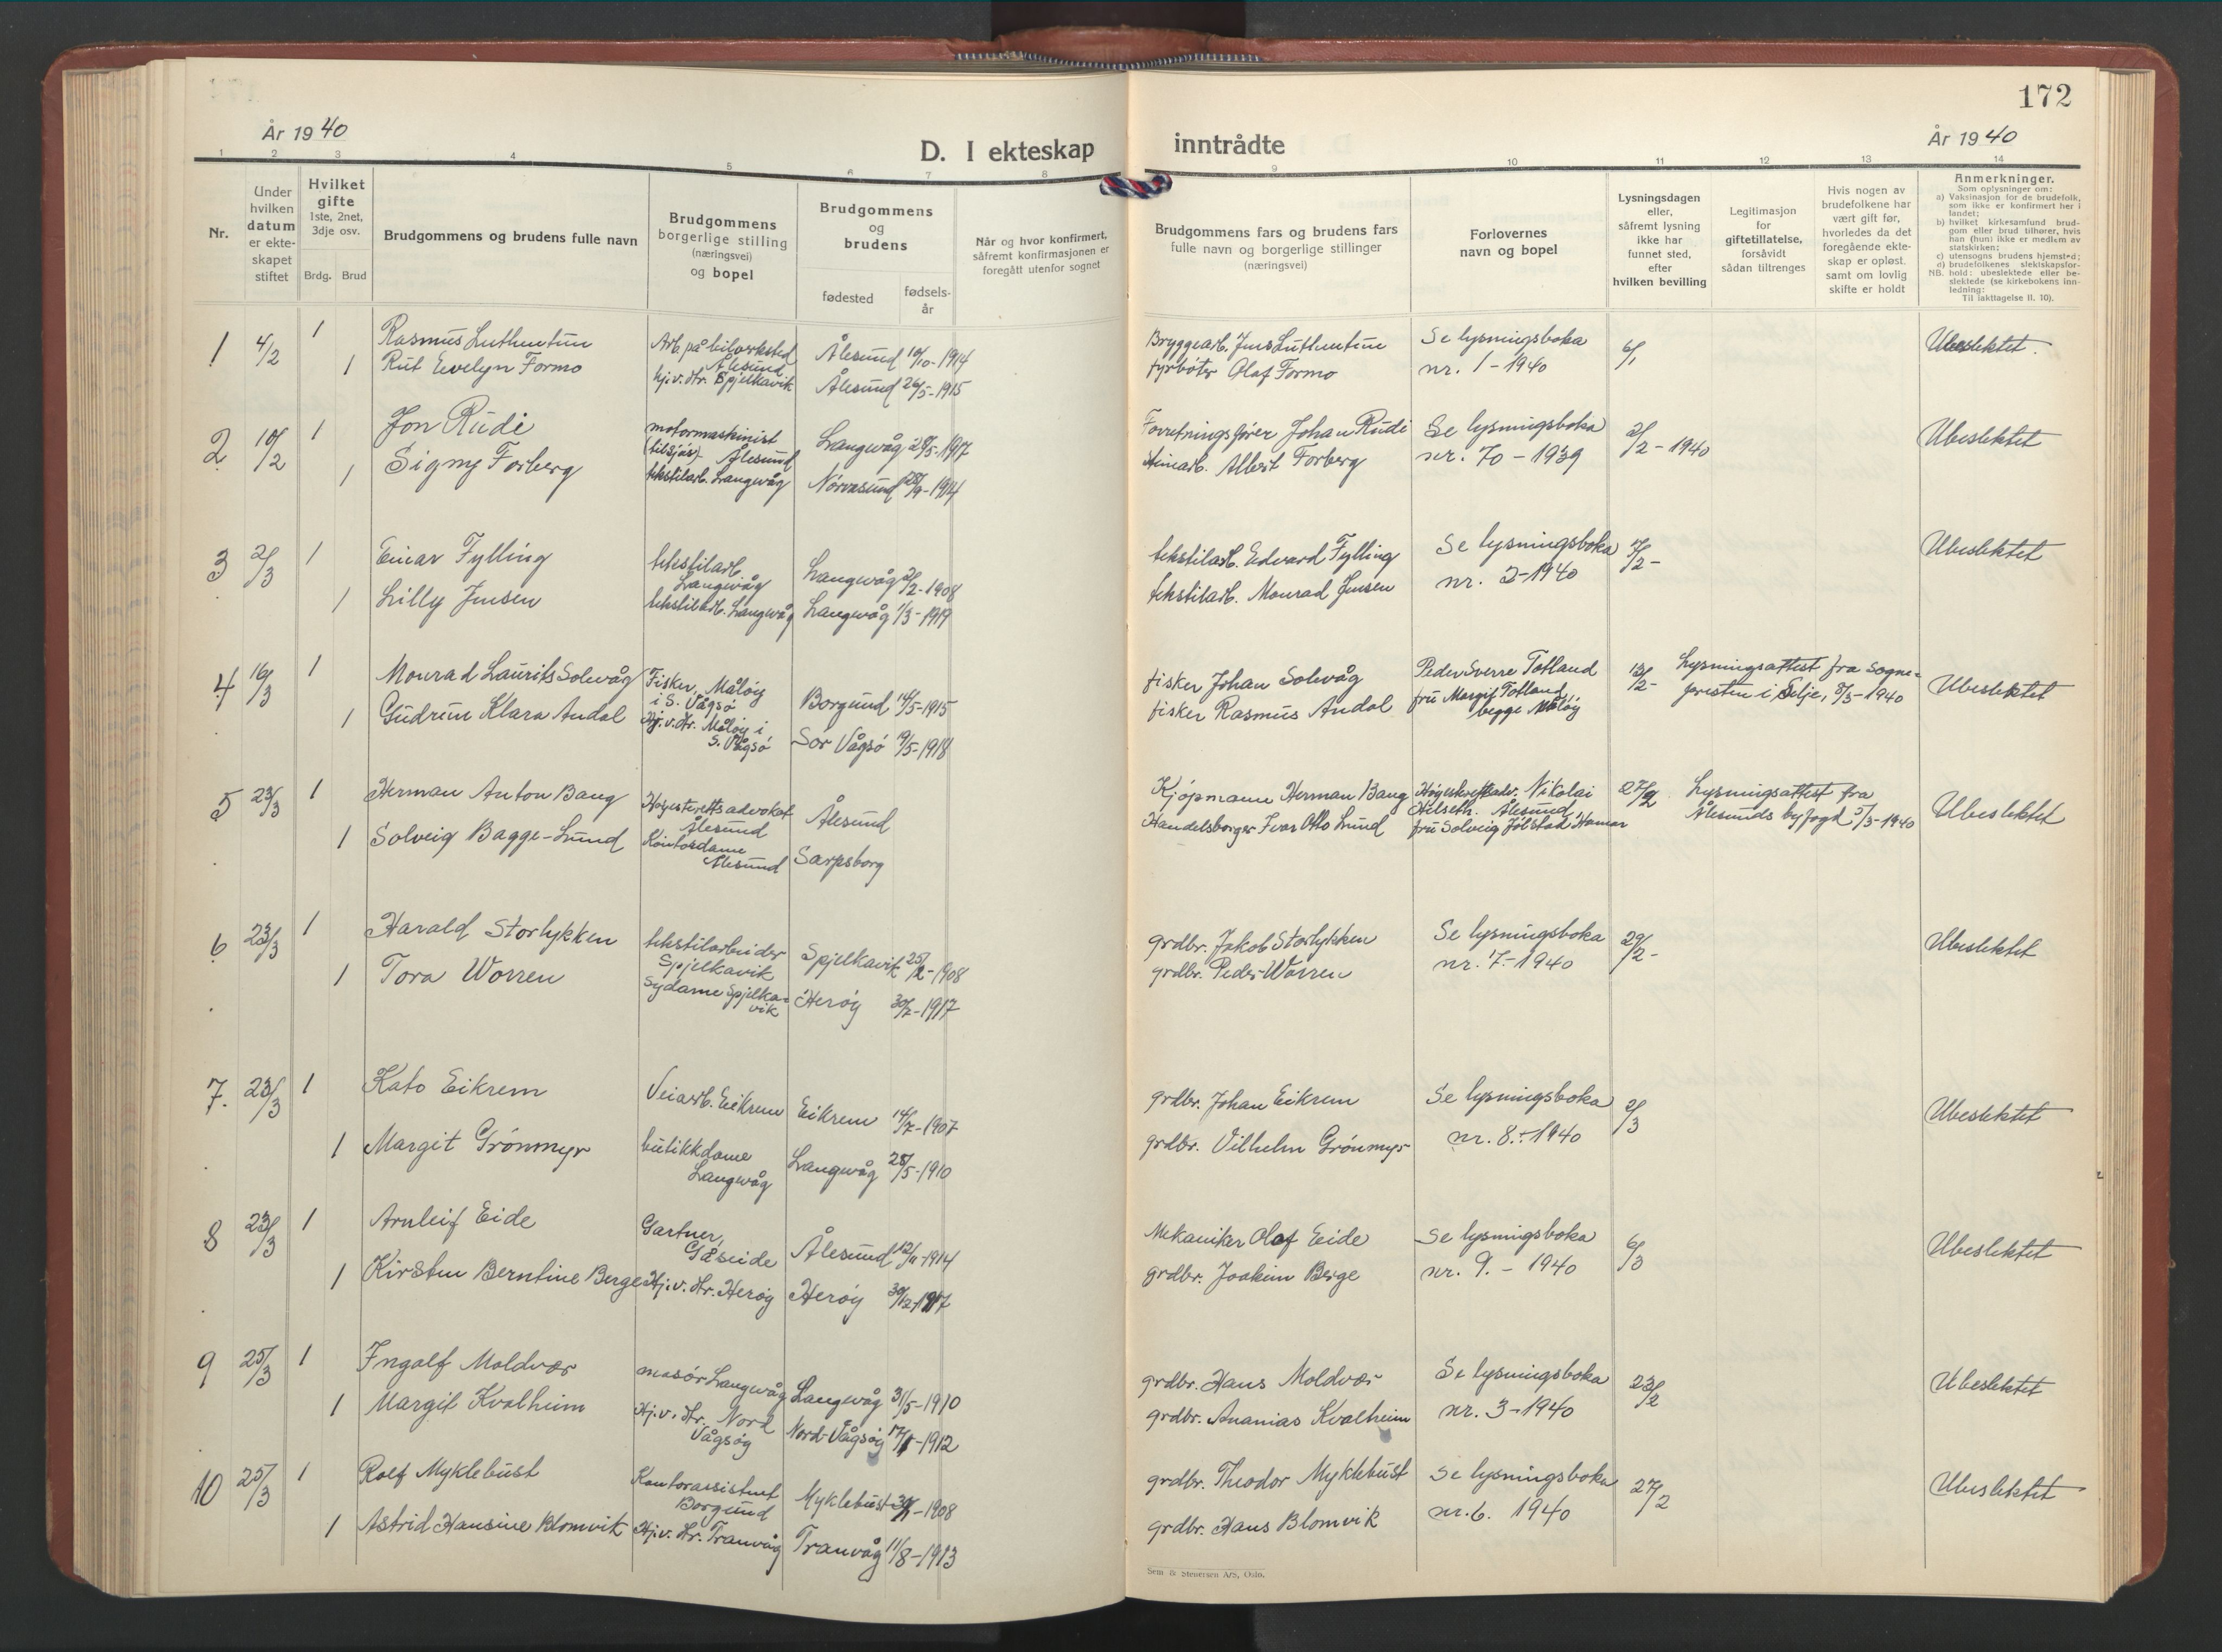 172
År 1940
D. I ekteskap inntrådte
År 1940
1 2 3 4 5 6 7 8 9 10 11 12 13 14
Nr.
Under hvilken datum er ekteskapet stiftet
Hvilket gifte 1ste, 2net, 3dje osv.
Brdg. Brud
Brudgommens og brudens fulle navn
Brudgommens borgerlige stilling (næringsvei) og bopel
Brudgommens og brudens
fødested
fødselsår
Når og hvor konfirmert, såfremt konfirmasjonen er foregått utenfor sognet
Brudgommens fars og brudens fars fulle navn og borgerlige stillinger (næringsvei)
Forlovernes navn og bopel
Lysningsdagen eller, såfremt lysning ikke har funnet sted, efter hvilken bevilling
Legitimasjon for giftetillatelse, forsåvidt sådan tiltrenges
Hvis nogen av brudefolkene har vært gift før, hvorledes da det foregående ekteskap er opløst, samt om lovlig skifte er holdt
Anmerkninger.
Som oplysninger om:
a) Vaksinasjon for de brudefolk, som ikke er konfirmert her i landet;
b) hvilket kirkesamfund brudgom eller brud tilhører, hvis han (hun) ikke er medlem av statskirken;
c) utensogns brudens hjemsted;
e) brudefolkenes slektskapsforhold: ubeslektede eller beslektede (se kirkebokens innledning:
NB.
Til iakttagelse II. 10).
1 4/2 1 Rasmus Luthentun Arb. på bilverksted Ålesund Ålesund 10/10-1914 Bryggearb. Jens Luthentun Se lysningsboka 6/1 Ubeslektet.
1 Rut Evelyn Formo hj.v.Hr. Spjelkavik Ålesund 26/5-1915 fyrbøter Olaf Formo nr. 1-1940
2 10/2 1 Jon Rudi motormaskinist (tilsjøs) Ålesund Langevåg 28/5-1917 Forretningsfører Johan Rudi Se lysningsboka 2/2-1940 Ubeslektet
1 Signy Forberg tekstilarb. Langevåg Nørvasund 28/9-1914 Albert Forberg nr. 70-1939
3 2/3 1 Einar Fylling tekstilarb. Langevåg Langevåg 2/2-1908 tekstilarb. Edvard Fylling Se lysningsboka 7/2- Ubeslektet
1 Lilly Jensen tekstilarb. Langevåg Langevåg 1/3-1919 tekstilarb. Monrad Jensen nr. 2-1940
4 16/3 1 Monrad Laurits Solevåg Fisker, Måløy i S. Vågsø Borgund 14/5-1915 fisker Johan Solevåg Peder Sverre Totland 13/2- Lysningsattest fra sogne- Ubeslektet
1 Gudrun Klara Andal Hj.v.Hr. Måløy i S. Vågsø Sør Vågsø 19/5-1918 fisker Rasmus Andal fru Margit Totland, begge Måløy presten i Selje, 8/3-1940
5 23/3 1 Herman Anton Bang Høyesterettsadvokat Ålesund Ålesund Kjøpmann Herman Bang Høyesterettsadv. Nikolai Helseth. Ålesund 27/2 Lysningsattest fra Ubeslektet
1 Solveig Bagge-Lund Kontordame Ålesund Sarpsborg Handelsborger Ivar Otto Lund fru Solveig Jølstad Hamar Ålesunds byfogd 5/3-1940
6 23/3 1 Harald Storlykken tekstilarbeider Spjelkavik Spjelkavik 25/2-1908 grdbr. Jakob Storlykken Se lysningsboka 29/2- Ubeslektet
1 Tora Worren Sydame Spjelkavik Herøy 30/7-1917 grdbr. Peder Worren nr. 7-1940
7. 23/3 1 Kato Eikrem Veiarb. Eikrem Eikrem 14/7-1907 grdbr. Johan Eikrem Se lysningsboka 2/3 Ubeslektet
1 Margit Grønmyr butikkdame Langevåg Langevåg 28/5-1910 grdbr. Vilhelm Grønmyr nr. 8.-1940
8 23/3 1 Arnleif Eide Gartner, Gåseide Ålesund 12/11-1914 Mekaniker Olaf Eide Se lysningsboka 6/3 Ubeslektet
1 Kirsten Berntine Berge Hj.v.Hr. Herøy Herøy 30/12-1917 grdbr. Joakim Berge nr. 9.-1940
9 25/3 1 Ingolf Moldvær masør Langevåg Langevåg 31/5-1910 grdbr. Hans Moldvær Se lysningsboka 23/2 Ubeslektet
1 Margit Kvalheim Hj.v.Hr. Nord Vågsøy Nord-Vågsøy 17/1-1912 grdbr. Ananias Kvalheim nr. 3-1940
10 25/3 1 Rolf Myklebust Kontorassistent Borgund Myklebust 1908 grdbr. Theodor Myklebust Se lysningsboka 27/2 Ubeslektet
1 Astrid Hansine Blomvik Hj.v.Hr. Tranvåg Tranvåg 11/8-1913 grdbr. Hans Blomvik nr. 6. 1940
Sem & Stenersen A/S, Oslo.